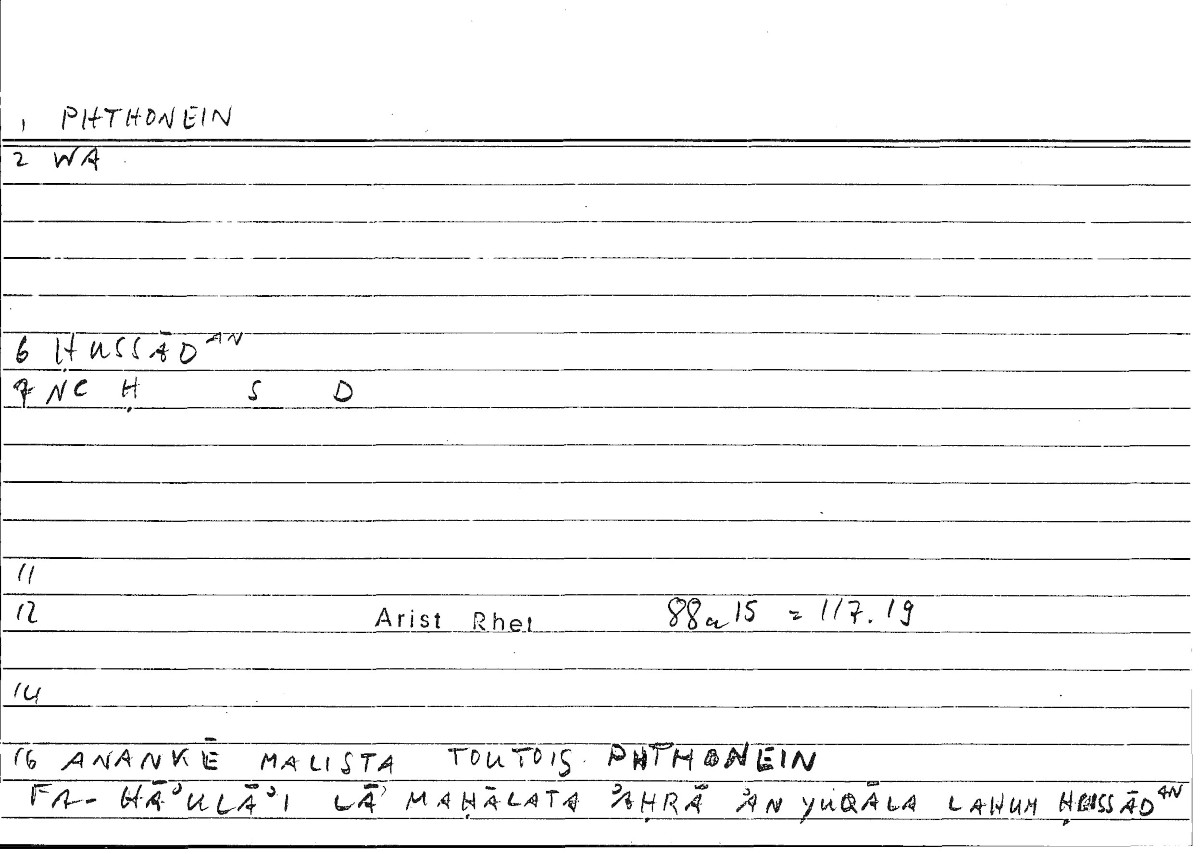 1 PHTHONEIN
2 WA
6 ḤUSSĀDᴬᴺ
7 NC Ḥ S D
11
12 Arist Rhet 88a15 = 117.19
14
16 ANANKĒ MALISTA TOUTOIS PHTHONEIN
FA- HĀʾULĀʾI LĀ MAḤĀLATA ʾAḤRĀ ʾAN YUQĀLA LAHUM ḤUSSĀDᴬᴺ